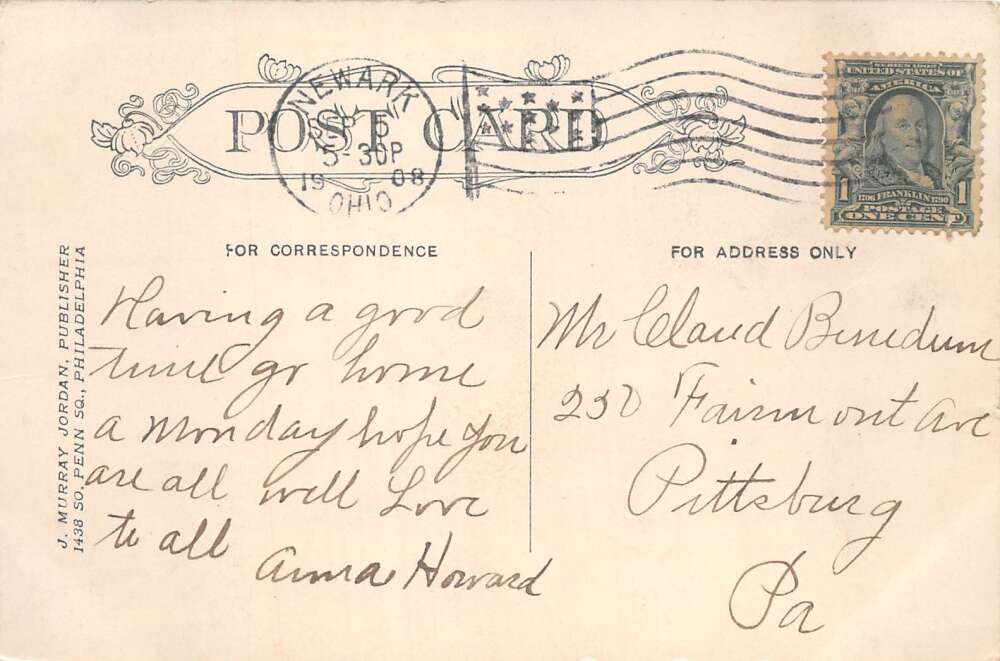 POST CARD
NEWARK
SEP 5
5-30P
19 08
OHIO
SERIES 1902
UNITED STATES OF
AMERICA
1 1
1706 FRANKLIN 1790
POSTAGE
ONE CENT
FOR CORRESPONDENCE
FOR ADDRESS ONLY
J. MURRAY JORDAN, PUBLISHER
1438 SO. PENN SQ., PHILADELPHIA
Having a good
time go home
a Monday hope you
are all well Love
to all
Anna Howard
Mr Claud Benedum
230 Fairmont Ave
Pittsburg
Pa